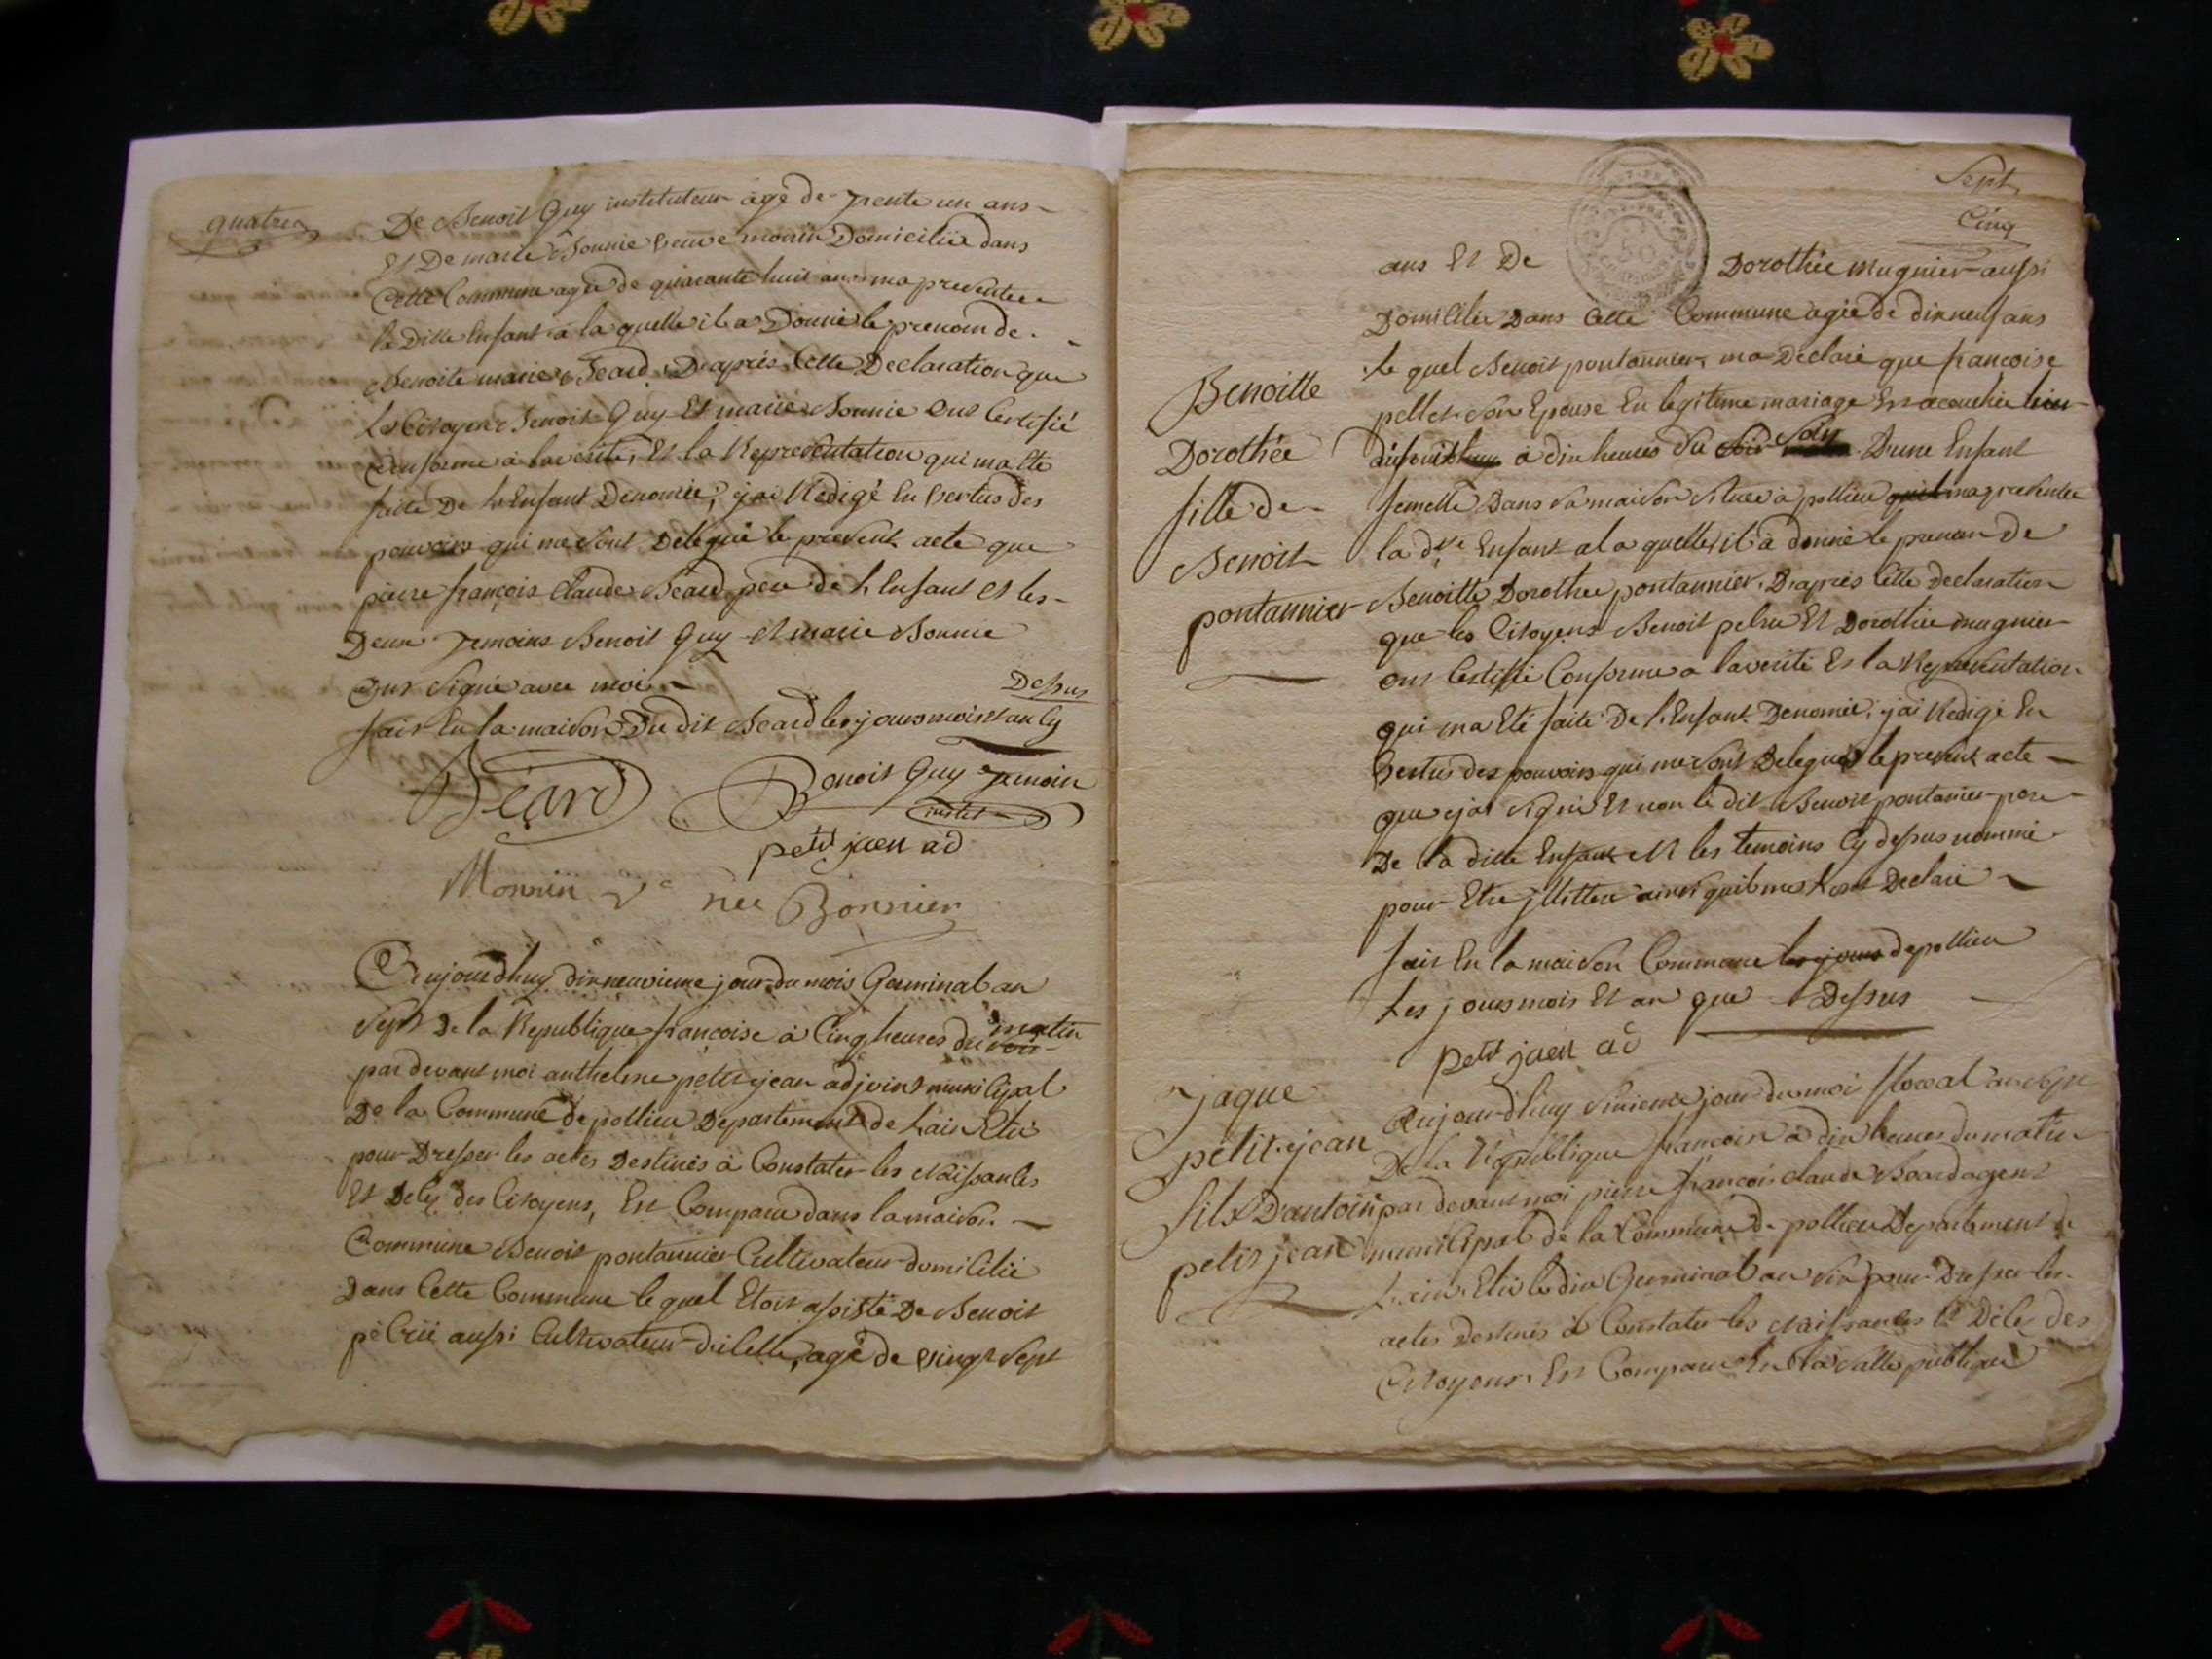 quatre
De Benoit Guy instituteur agé de trente un ans
Et De marie Bonnie veuve monin Domiciliée dans
Cette Commune agée de quarante huit ans ma presentée
la Ditte Enfant a la quelle il a Donné le prenom de
Benoite marie Beard, Daprés Cette Declaration que
le Citoyen Benoit Guy Et marie Bonnie ont Certifié
Conforme à la verité, Et la Representation qui ma Eté
faite De l'Enfant Denomée, j'ai Redigé En vertus des
pouvoirs qui me sont Delegué le present acte que
pierre françois Claude Beard pere de l'Enfant et les
Deux Temoins Benoit Guy et marie Bonnie
ont signé avec moi
fait En la maison Du dit Beard les jours mois et an Cy
Dessus
Béard
Benoit Guy Temoin
instit
petit jaen ad
Monnin Ve née Bonnier
Aujourdhuy dixneuvieme jour du mois Germinal an
Sept De la Republique françoise à Cinq heures du soir matin
par devant moi anthelme petit jean adjoint municipal
De la Commune de pollieu Departement de Lain Elû
pour Dresser les actes Destinés à Constater les Naissances
Et Décés des Citoyens, Est Comparu dans la maison
Commune Benoit pontannier Cultivateur domicilié
Dans Cette Commune le quel Etoit assisté De Benoit
pélrü aussi Cultivateur dicelle, agé de vingt sept
Sept
Cinq
ans Et De Dorothée mugnier aussi
Domiciliée Dans Cette Commune agée de dixneuf ans
le quel Benoit pontannier, ma Declaré que francoise
pellet son Epouse En legitime mariage Est acouchée hier
à dix heures du soir Dune Enfant
femelle Dans sa maison située à pollieu quil ma presentée
la dte Enfant a la quelle il à donné le prenom De
Benoitte Dorothée pontannier. Daprés Cette declaration
que les Citoyens Benoit pelru Et Dorothée mugnier
ont Certiffié Conforme a la verité Et la Representation
qui ma Eté faite De l'Enfant Denomée, j'ai Redigé En
vertus des pouvoirs qui me sont Delegués le present acte
que j'ai signé Et non le dit Benoit pontanier pere
De la ditte Enfant Et les temoins Cy dessus nommé
pour Etre jllittere ainsi quil me l'ont Declaré
fait En la maison Commune les jours de pollieu
Les jours mois Et an que Dessus
petit jaen ad
Benoitte
Dorothée
fille de
Benoit
pontannier
Jaque
petit jean
fils D'antoine
petit jean
Aujourdhuy sixieme jour du mois floreal an Sept
De la Republique françoise à dix heures du matin
par devant moi pierre françois Claude Beard agent
municipal de la Commune de pollieu Departement de
Lain Elû le dix Germinal an six pour Dresser les
actes destinés à Constater les Naissances Et Décés des
Citoyens, Est Comparu En la salle publique